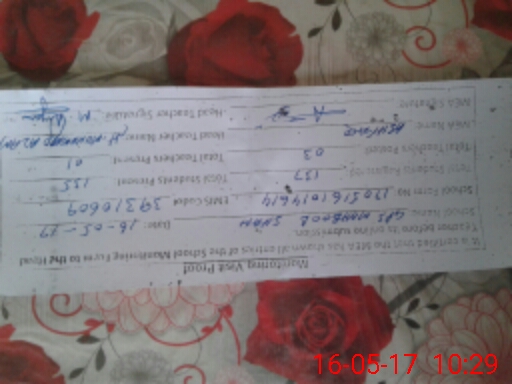 Monitoring Visit Proof
It is certified that the MEA has shown all entries of the School Monitoring Form to the Head
Teacher before online submission.
School Name: GPS MAHBOOB SHAH Date: 16-05-17
School Form No 1705161014614 EMIS Code: 39310609
Total Students Required 157 Total Students Present 155
Total Teachers Posted 03 Total Teachers Present 01
MEA Name: Head Teacher Name:
MEA Signature Head Teacher Signature
16-05-17 10:29